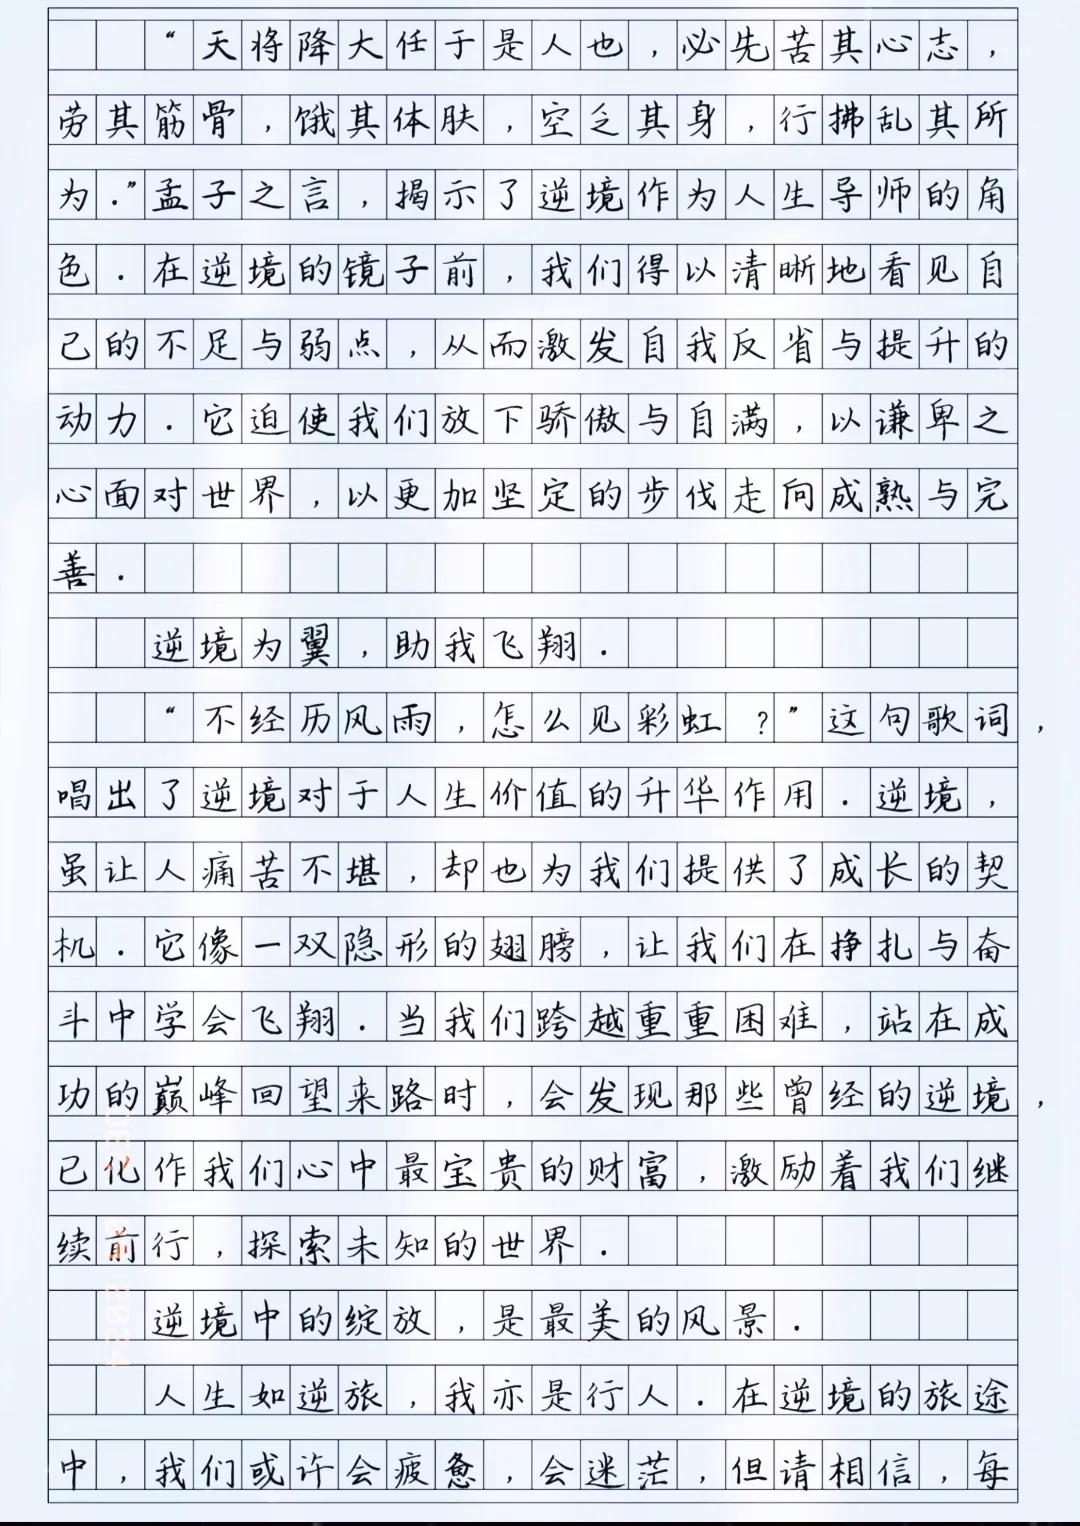 “天将降大任于是人也，必先苦其心志，
劳其筋骨，饿其体肤，空乏其身，行拂乱其所
为．”孟子之言，揭示了逆境作为人生导师的角
色．在逆境的镜子前，我们得以清晰地看见自
己的不足与弱点，从而激发自我反省与提升的
动力．它迫使我们放下骄傲与自满，以谦卑之
心面对世界，以更加坚定的步伐走向成熟与完
善．
逆境为翼，助我飞翔．
“不经历风雨，怎么见彩虹？”这句歌词，
唱出了逆境对于人生价值的升华作用．逆境，
虽让人痛苦不堪，却也为我们提供了成长的契
机．它像一双隐形的翅膀，让我们在挣扎与奋
斗中学会飞翔．当我们跨越重重困难，站在成
功的巅峰回望来路时，会发现那些曾经的逆境，
已化作我们心中最宝贵的财富，激励着我们继
续前行，探索未知的世界．
逆境中的绽放，是最美的风景．
人生如逆旅，我亦是行人．在逆境的旅途
中，我们或许会疲惫，会迷茫，但请相信，每